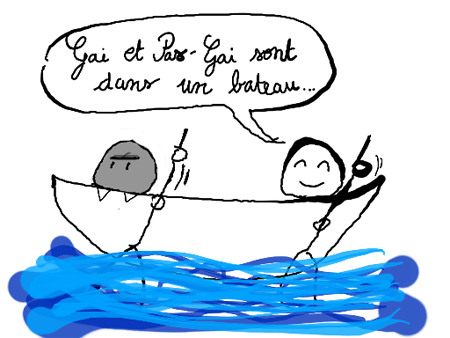 Gai et Pas-Gai sont
dans un bateau...